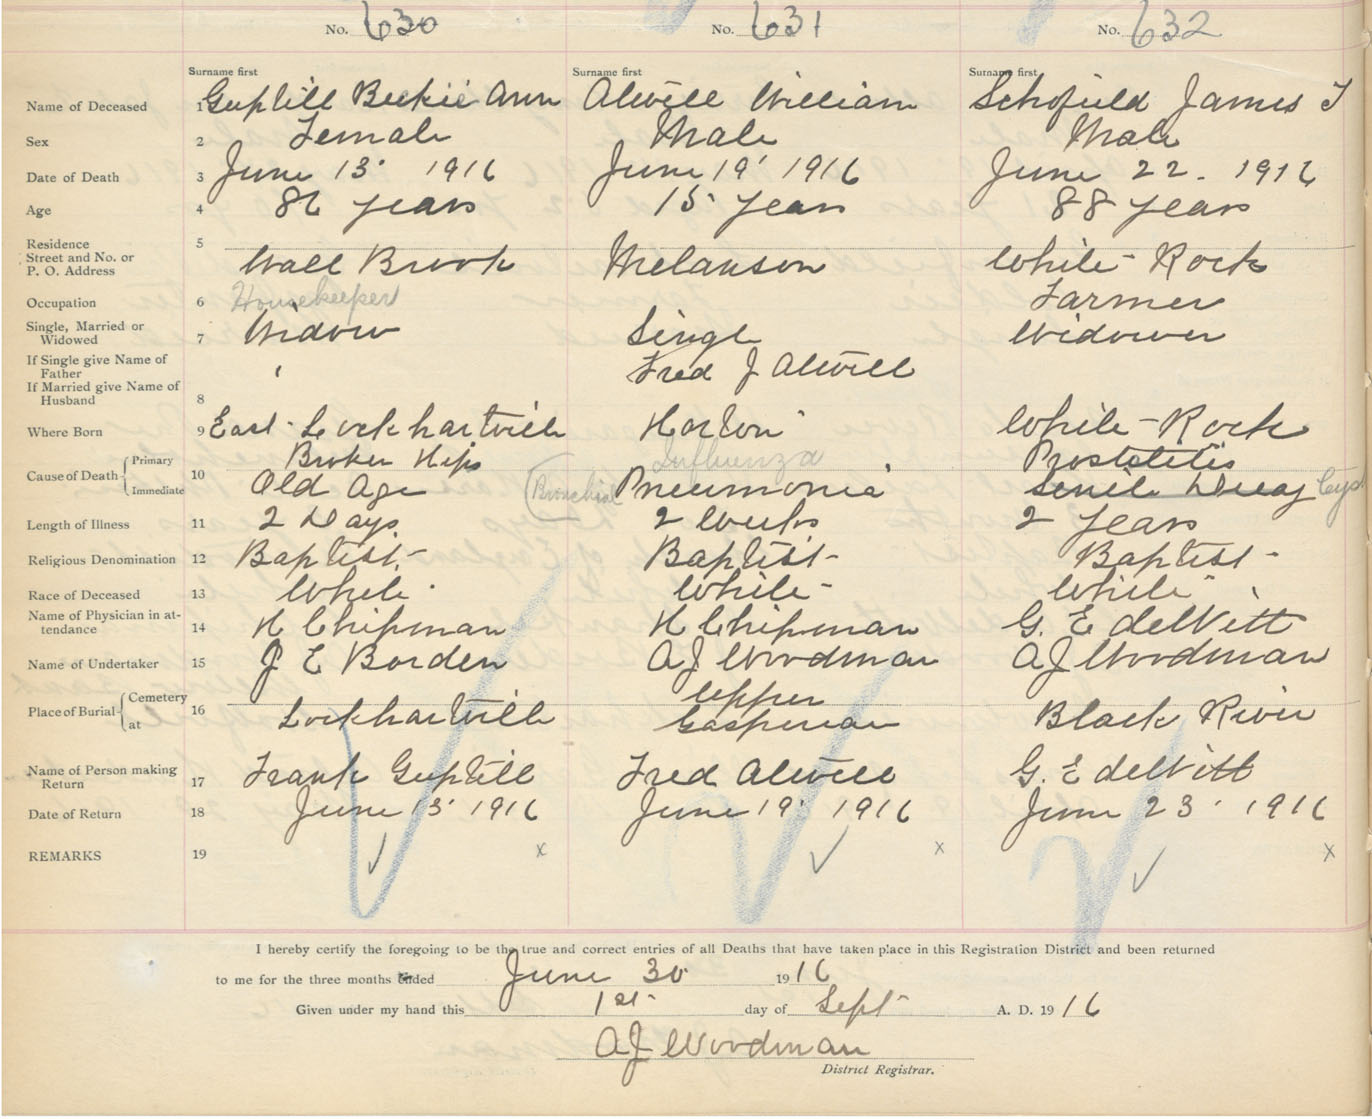 No. 630 No. 631 No. 632
Surname first Surname first Surname first
Name of Deceased 1 Guptill Beckie Ann Atwell William Schofield James T
Sex 2 Female Male Male
Date of Death 3 June 13 1916 June 19 1916 June 22. 1916
Age 4 years 15 years 88 years
Residence 5
Street and No. or
P. O. Address Wall Brook Melanson White-Rock
Occupation 6 Housekeeper Farmer
Single, Married or
Widowed 7 Widow Single Widower
If Single give Name of
Father Fred J Atwell
If Married give Name of
Husband 8
Where Born 9 East-Lockhartville Horton White-Rock
Cause of Death { Primary 10 Broken Hips Influenza Prostatitis
Immediate Old Age (Bronchial Pneumonia Senile Decay Cyst
Length of Illness 11 2 Days 2 Weeks 2 years
Religious Denomination 12 Baptist- Baptist- Baptist-
Race of Deceased 13 White White- White
Name of Physician in at-
tendance 14 H Chipman H Chipman G. E deWitt
Name of Undertaker 15 J E Borden AJ Woodman AJ Woodman
Place of Burial { Cemetery 16 Upper
at Lockhartville Gaspereau Black River
Name of Person making
Return 17 Frank Guptill Fred Atwell G. E deWitt
Date of Return 18 June 13 1916 June 19 1916 June 23 1916
REMARKS 19 ✓ x ✓ x ✓ x
I hereby certify the foregoing to be the true and correct entries of all Deaths that have taken place in this Registration District and been returned
to me for the three months Ended June 30 1916
Given under my hand this 1st- day of Sept- A. D. 1916
AJ Woodman
District Registrar.